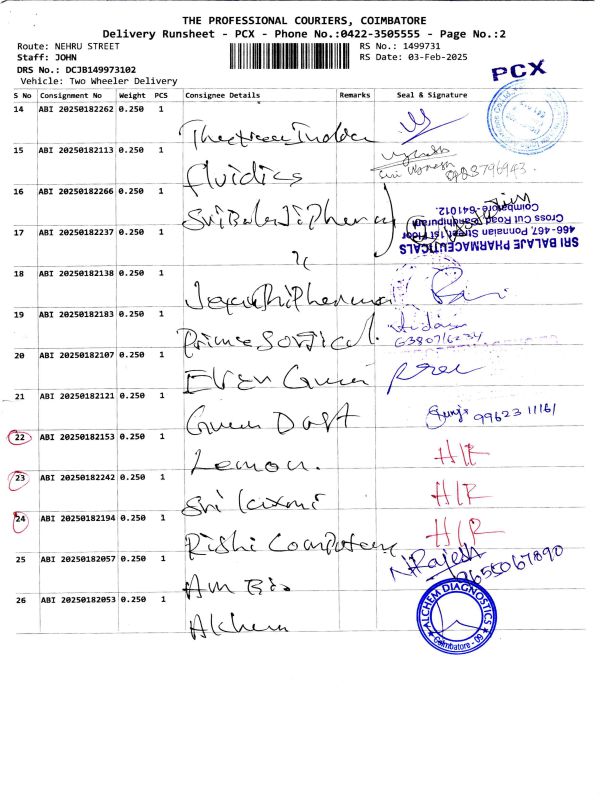 THE PROFESSIONAL COURIERS, COIMBATORE
Delivery Runsheet - PCX - Phone No.:0422-3505555 - Page No.:2
Route: NEHRU STREET
RS No.: 1499731
Staff: JOHN
RS Date: 03-Feb-2025
DRS No.: DCJB149973102
PCX
Vehicle: Two Wheeler Delivery
S No Consignment No Weight PCS Consignee Details Remarks Seal & Signature
14 ABI 20250182262 0.250 1
15 ABI 20250182113 0.250 1 fluidics
16 ABI 20250182266 0.250 1
17 ABI 20250182237 0.250 1
SRI BALAJE PHARMACEUTICALS
466-467, Ponnaian Street, 1st Floor
Cross Cut Road, Gandhipuram
Coimbatore-641012.
18 ABI 20250182138 0.250 1
19 ABI 20250182183 0.250 1 Prime Sorjical.
6380716234
20 ABI 20250182107 0.250 1
21 ABI 20250182121 0.250 1
99623 11161
22 ABI 20250182153 0.250 1 Lemon. H/R
23 ABI 20250182242 0.250 1 Sri laxmi H/R
24 ABI 20250182194 0.250 1 Rishi H/R
25 ABI 20250182057 0.250 1 Am Bio N.Rajesh
9655067890
26 ABI 20250182053 0.250 1 Alchem
ALCHEM DIAGNOSTICS
Coimbatore - 09